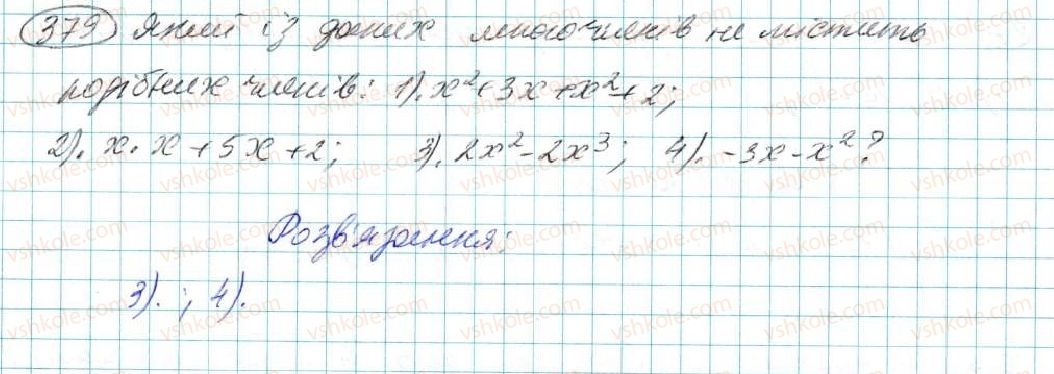 379 Який із даних многочленів не містить
подібних членів: 1). x²+3x+x²+2;
2). x·x+5x+2; 3). 2x²-2x³; 4). -3x-x²?
Розв'язання:
3). ; 4).